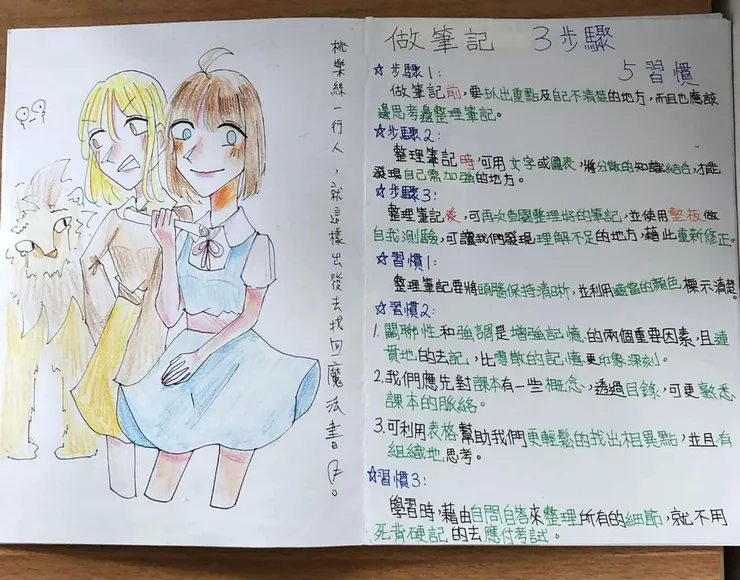 桃樂絲一行人，就這樣出發去找回魔法書了。
做筆記 3步驟
5習慣
☆步驟1:
做筆記前，要抓出重點及自己不清楚的地方，而且也應該
邊思考邊整理筆記。
☆步驟2:
整理筆記時，可用文字或圖表，將分散的知識結合，才能
發現自己需加強的地方。
☆步驟3:
整理筆記後，可再次查閱整理好的筆記，並使用墊板做
自我測驗，可讓我們發現理解不足的地方，藉此重新修正。
☆習慣1:
整理筆記要將頭腦保持清晰，並利用適當的顏色標示清楚。
☆習慣2:
1.關聯性和強調是增強記憶的兩個重要因素，且連
貫地的去記，比零散的記憶更印象深刻。
2.我們應先對課本有一些概念，透過目錄，可更熟悉
課本的脈絡。
3.可利用表格幫助我們更輕鬆的找出相異點，並且有
組織地思考。
☆習慣3:
學習時，藉由自問自答來整理所有的細節，就不用
死背硬記的去應付考試。